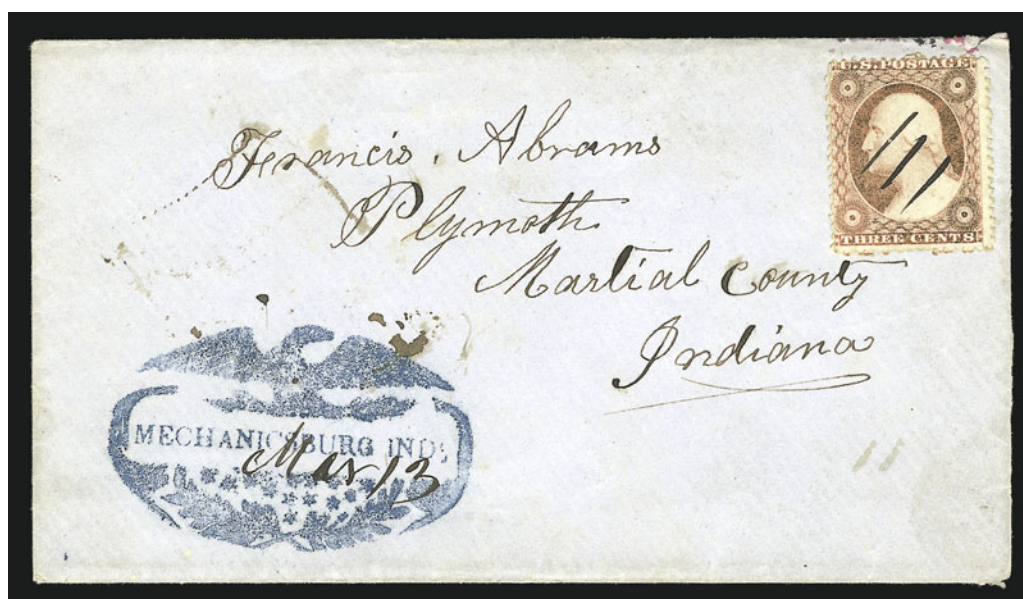 U.S. POSTAGE
THREE CENTS
Francis. Abrams
Plymoth
Martial County
Indiana
MECHANICSBURG INDA
Mar 13